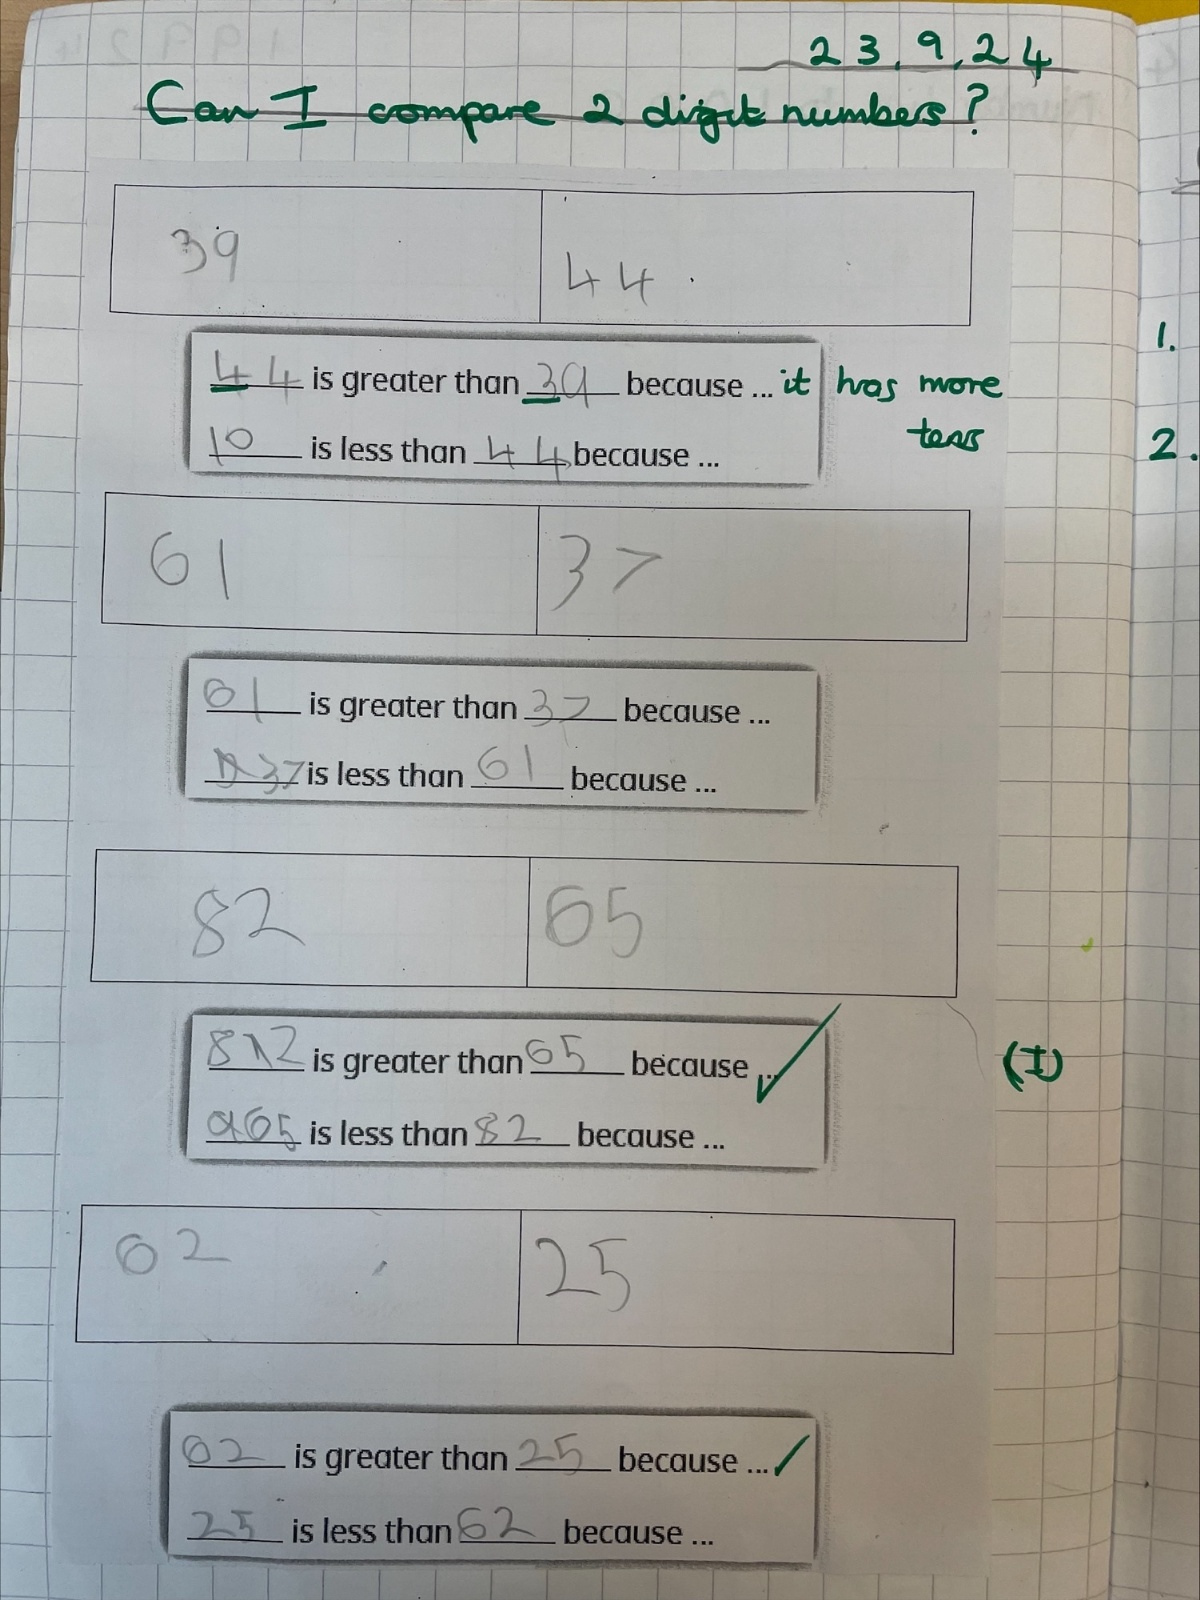 23.9.24
Can I compare 2 digit numbers?
39 44
44 is greater than 39 because ... it has more
tens
10 is less than 44 because ...
61 37
61 is greater than 37 because ...
37 is less than 61 because ...
82 65
82 is greater than 65 because ...
65 is less than 82 because ...
(I)
62 25
62 is greater than 25 because ...
25 is less than 62 because ...
1.
2.